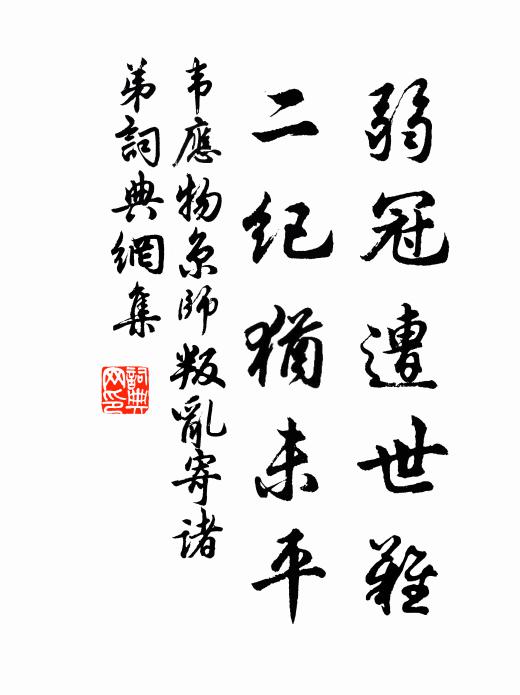 弱冠遭世難
二紀猶未平
韦應物京師叛亂寄諸
弟詞典網集
詞典网印